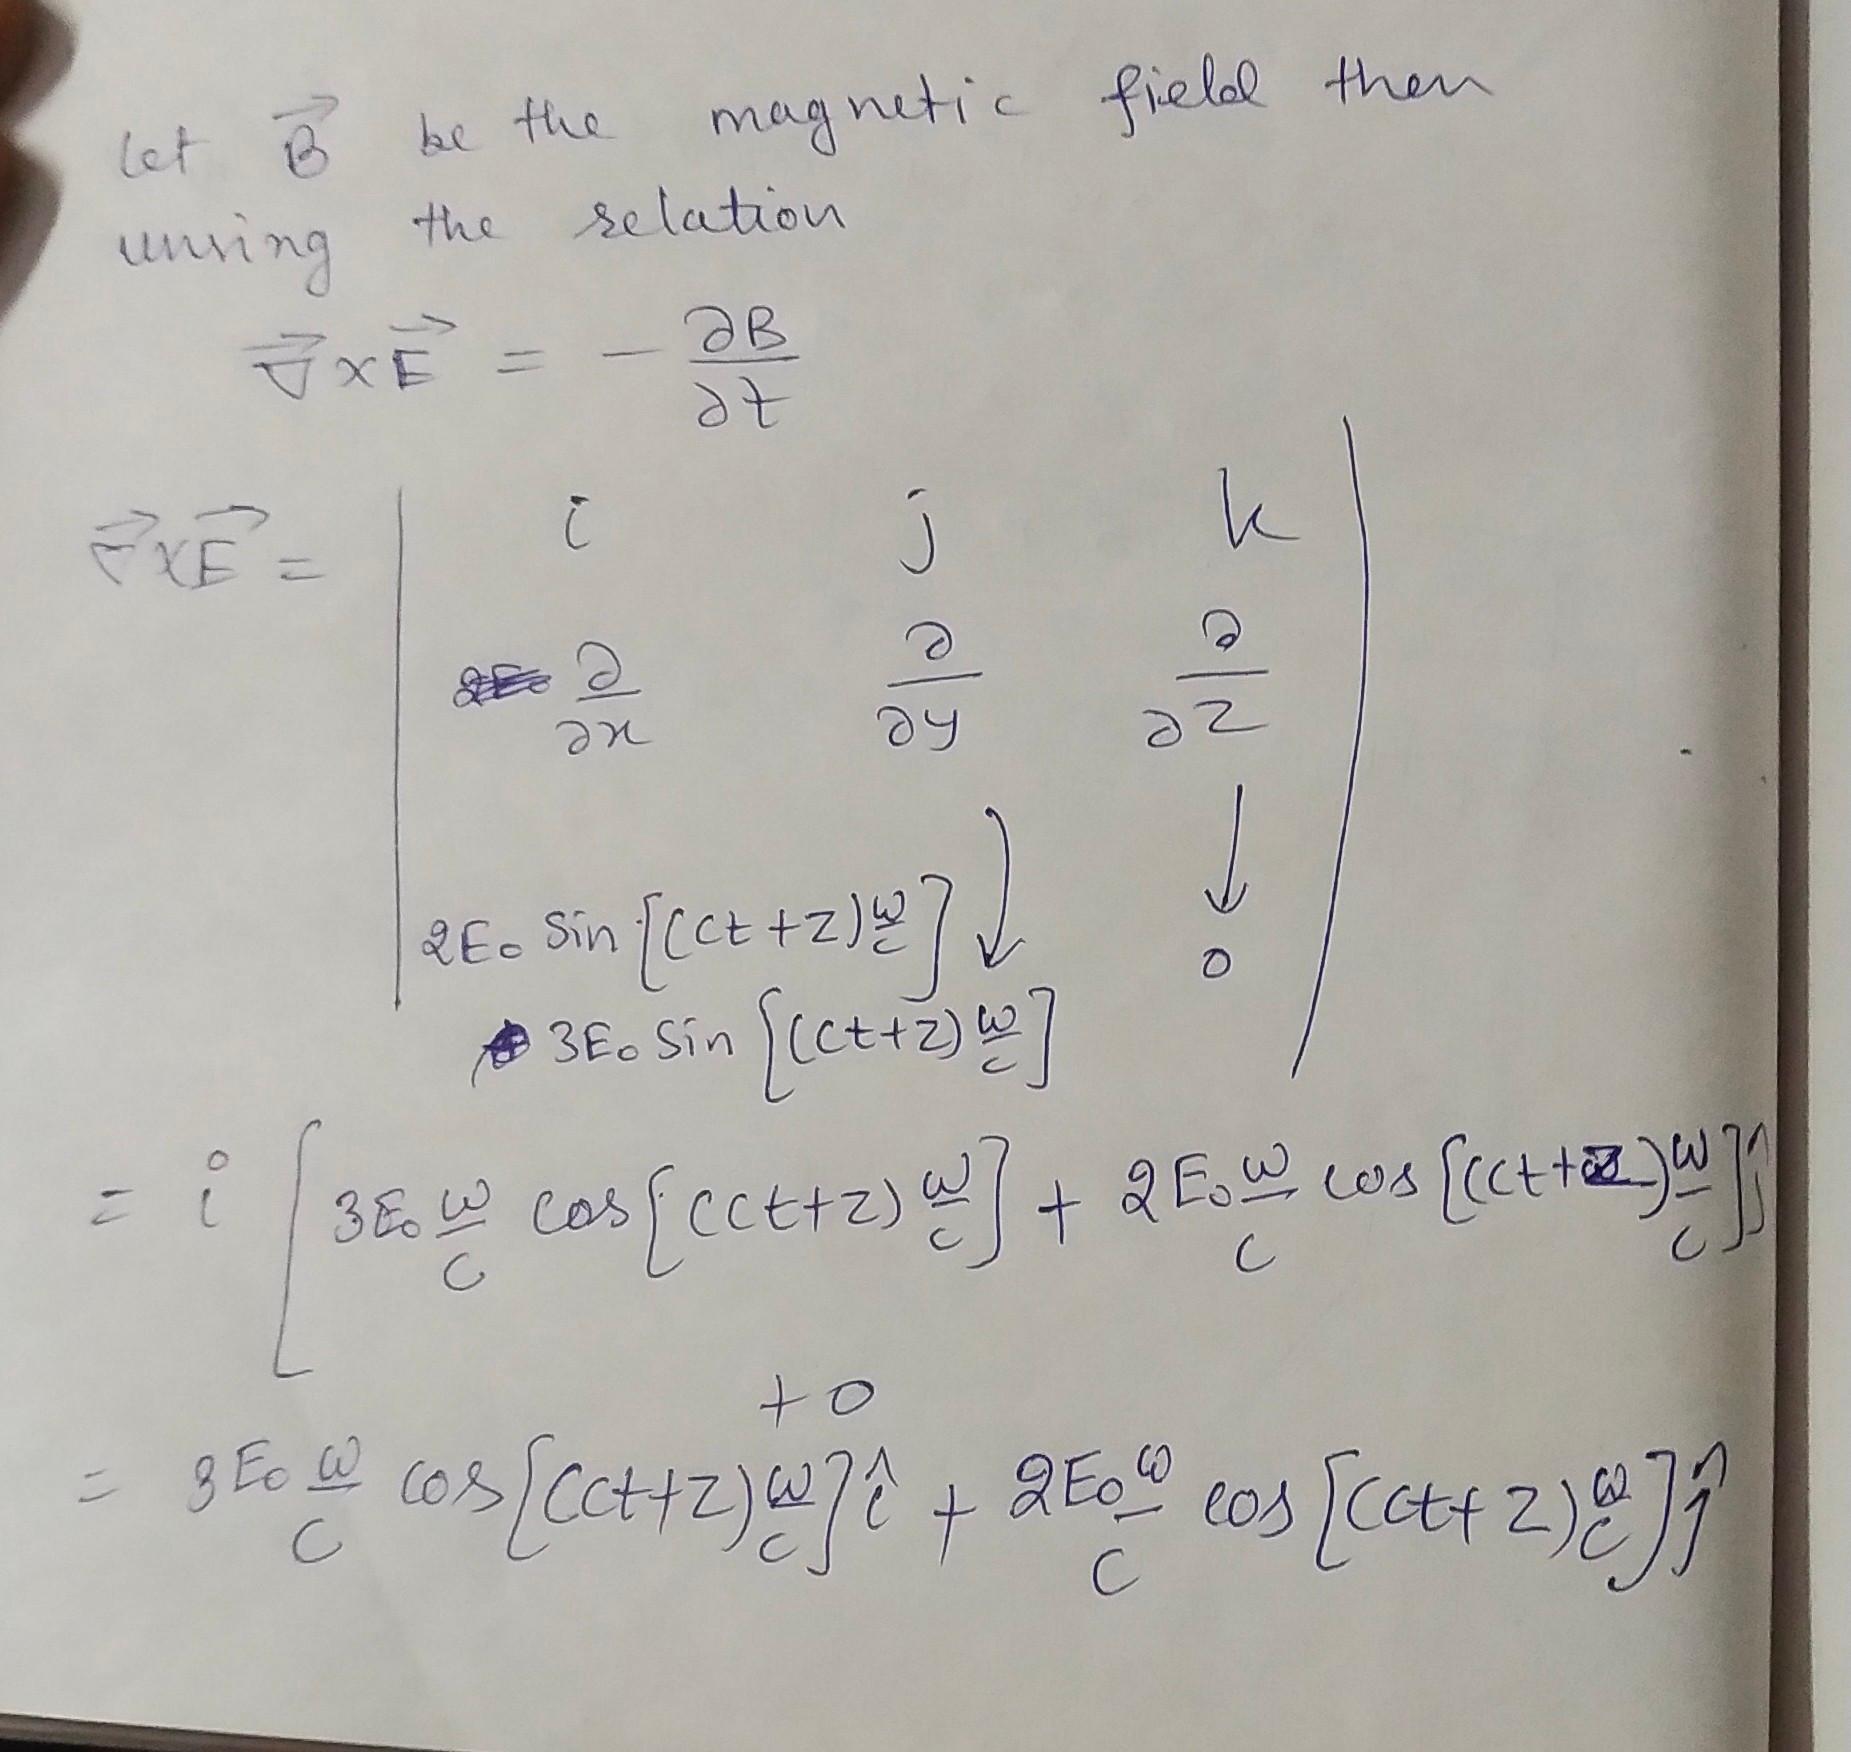 let B⃗ be the magnetic field then
unsing the relation
∇⃗ × E⃗ = - ∂B/∂t
∇⃗ × E⃗ = | i j k |
∂/∂x ∂/∂y ∂/∂z
2E₀ Sin [(ct+z) ω/c] ↓ 0
3E₀ Sin [(ct+z) ω/c]
= i [ 3E₀ ω/c cos [(ct+z) ω/c] + 2E₀ ω/c cos [(ct+z) ω/c] ĵ
+ 0
= 3E₀ ω/c cos [(ct+z) ω/c] î + 2E₀ ω/c cos [(ct+z) ω/c] ĵ